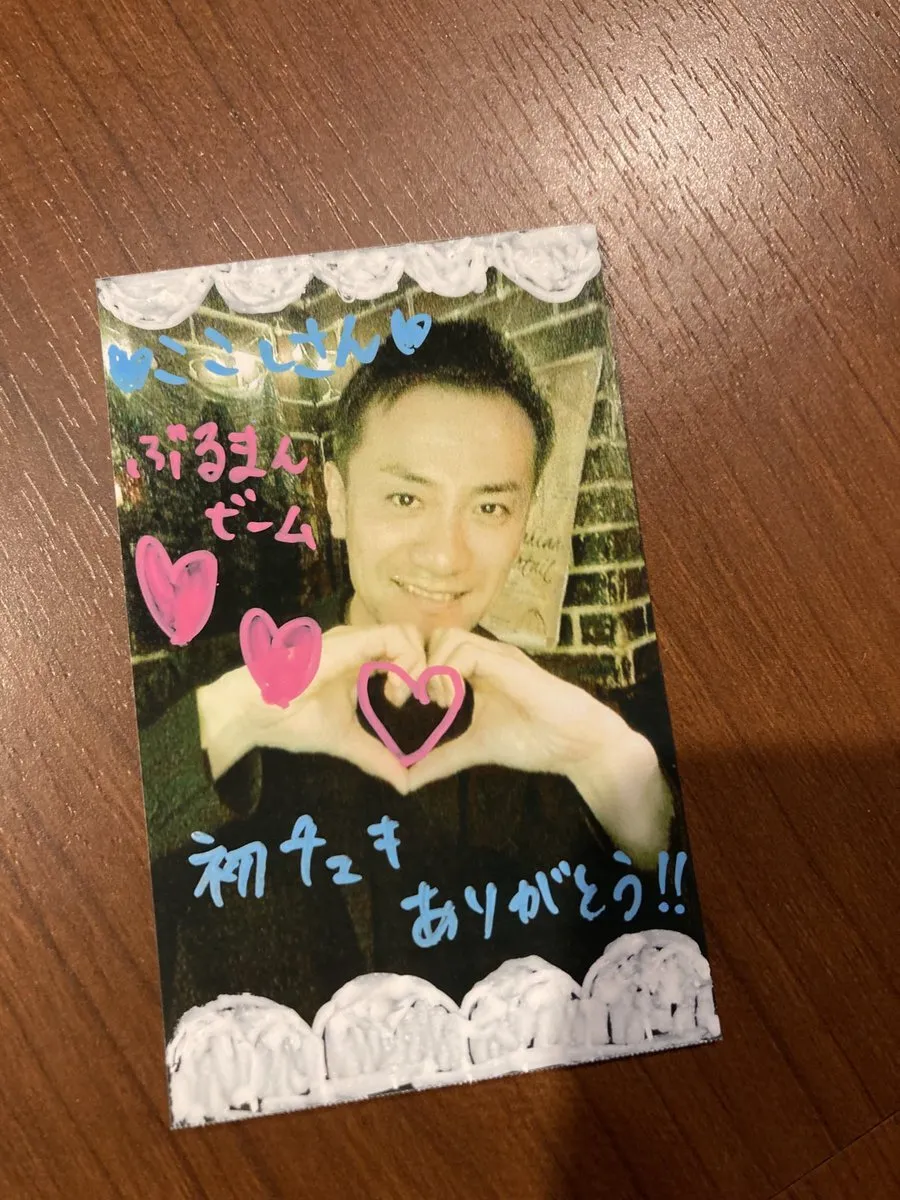 ♡ここしさん♡
ぶるまん
ビーム
初チェキ
ありがとう!!